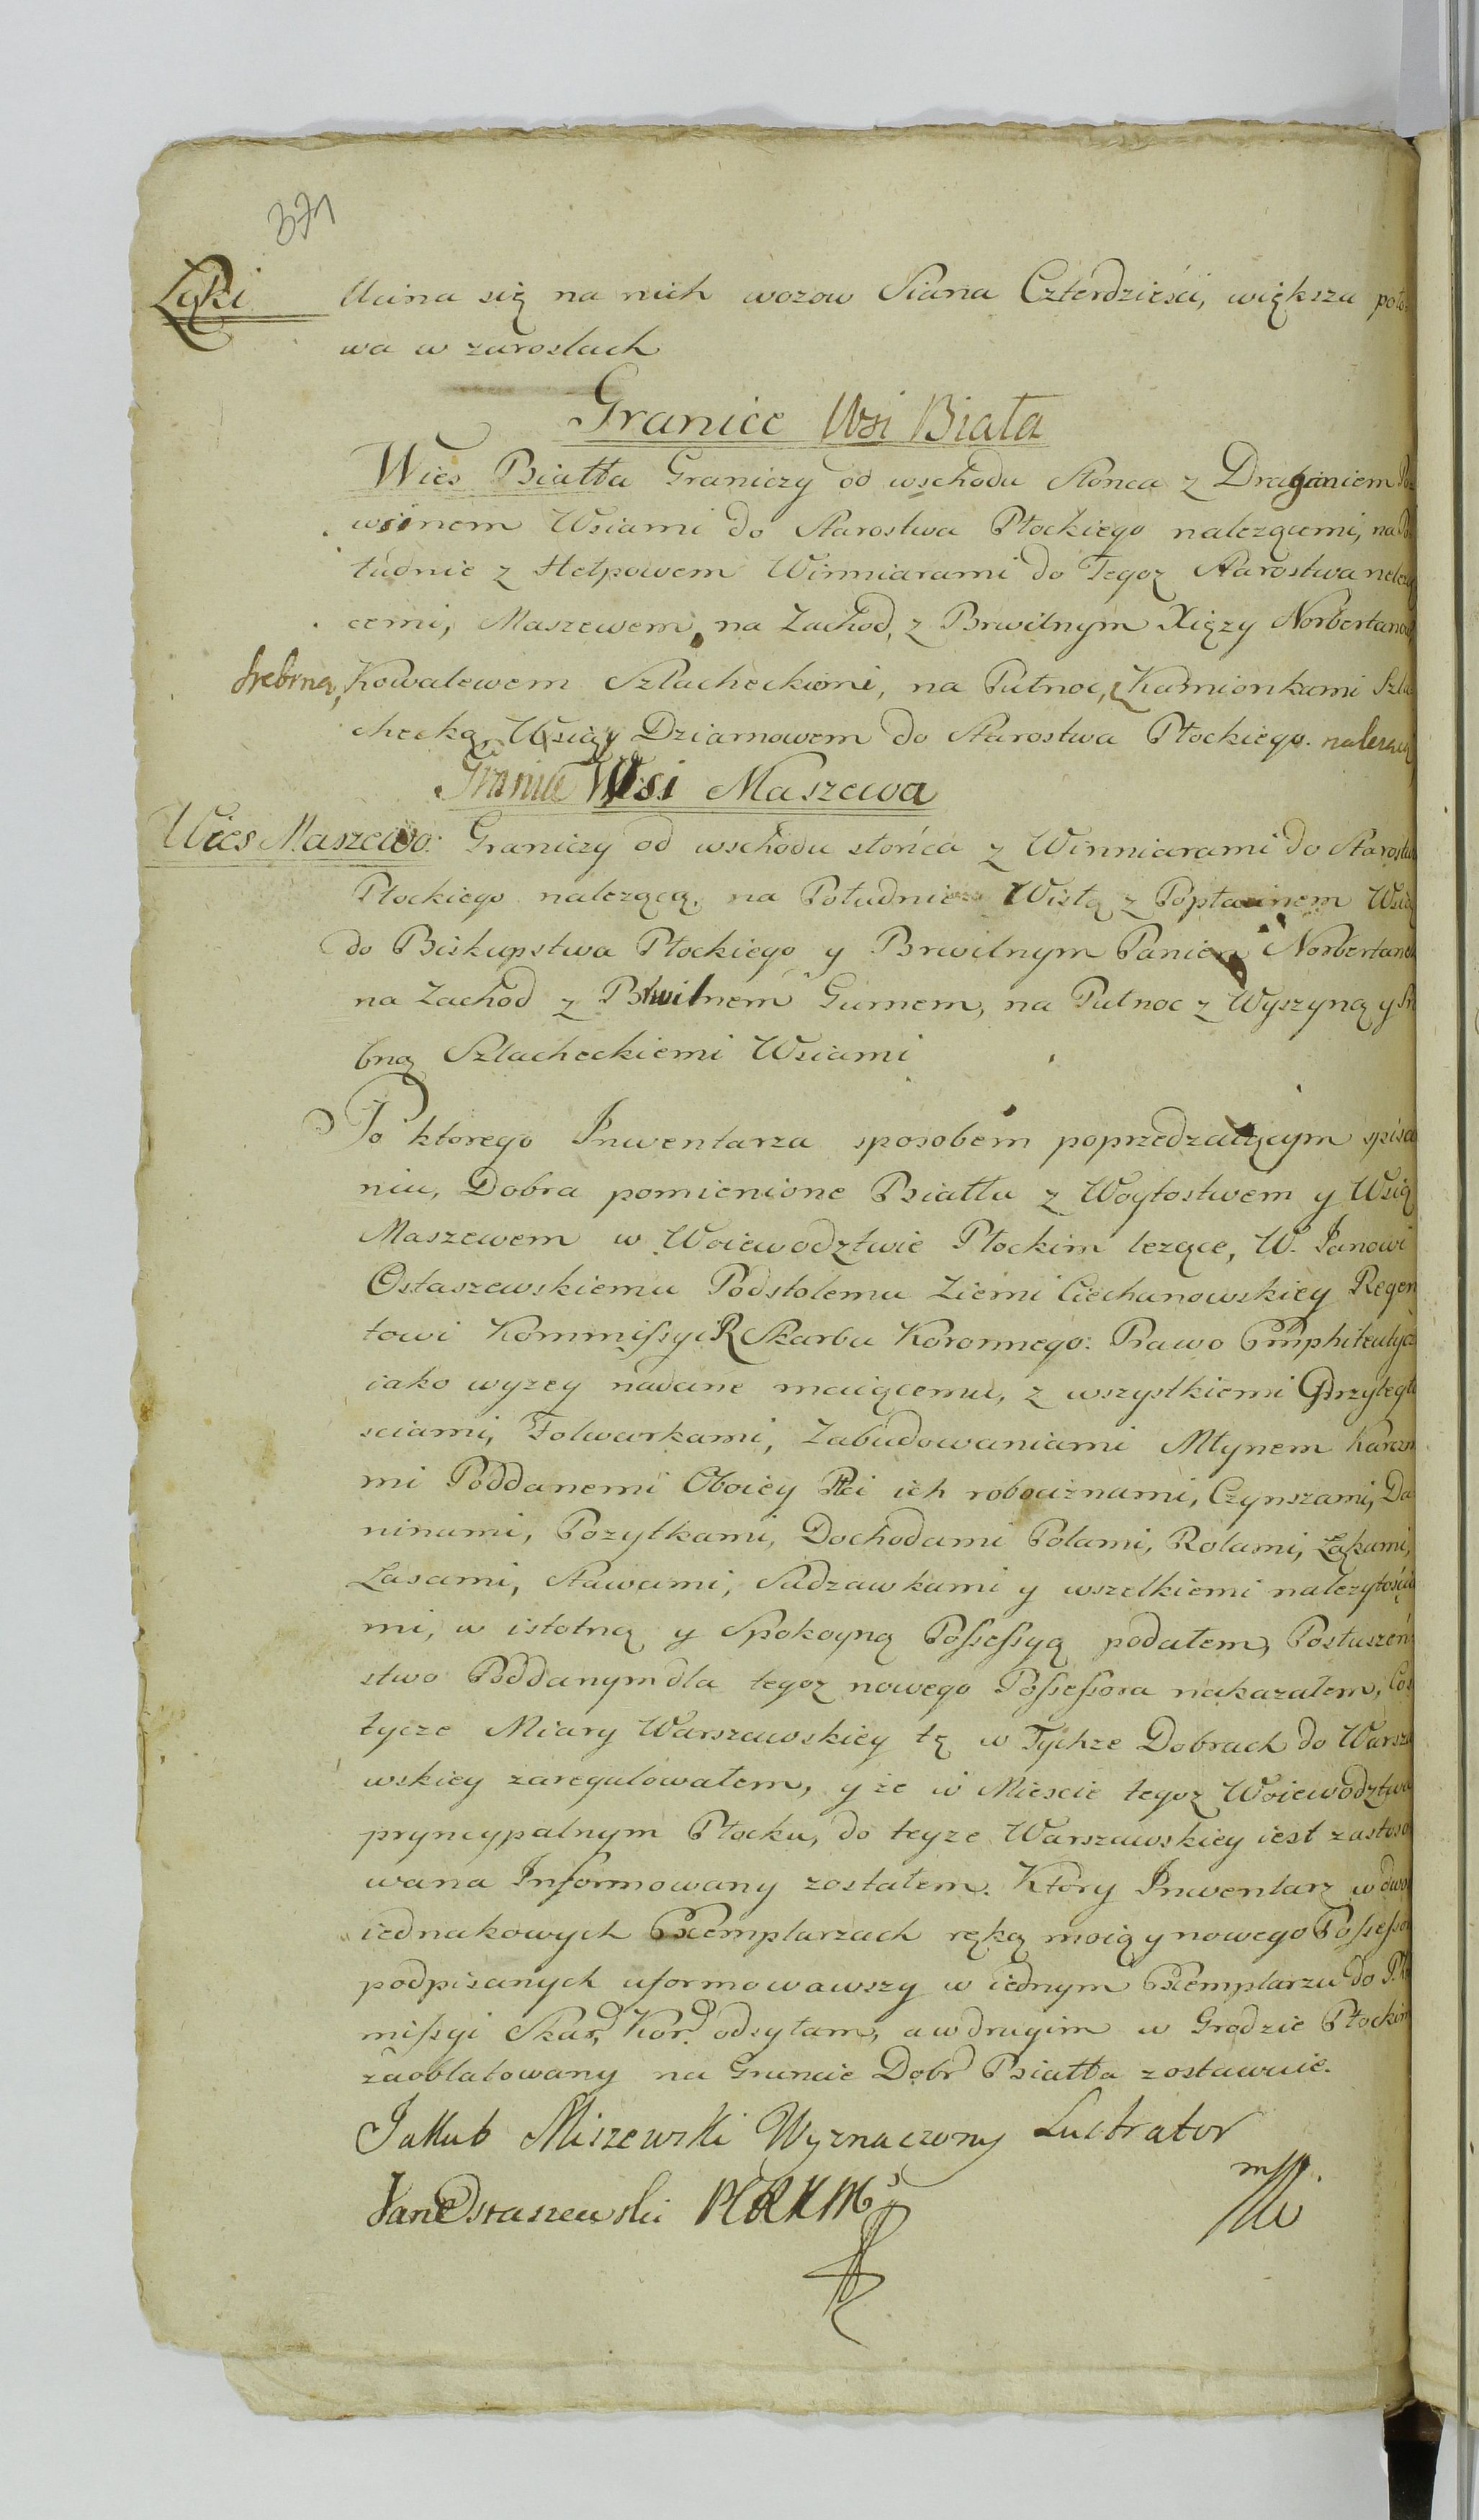 371
Łąki Ucina się na nich wozow Siana Czterdzieści, większa poło-
wa w zaroslach
Granice Wsi Biała
Wies Białła Graniczy od wschodu Słonca z Draganiem
wsinem Wsiami do Starostwa Płockiego nalezącemi, na Po
łudnie z Hełpowem Winniarami do Tegoz Starostwa nelezą
cemi, Maszewem, na Zachod, z Brwilnym Xięzy Norbertanow
Srebrną, Kowalewem Szlacheckiemi, na Pułnoc, z Kamionkami Szla
checką, Wsią y Dziarnowem do Starostwa Płockiego. nalezącą
Granice Wsi Maszewa
Wies Maszewo: Graniczy od wschodu słońca z Winniarami do Starostwa
Płockiego nalezącą, na Południe za Wisłą z Popłacinem Wsią
do Biskupstwa Płockiego y Brwilnym Panien Norbertanek
na Zachod z Brwilnem Gurnem, na Pułnoc z Wyszyną y Sre
brną Szlacheckiemi Wsiami
Po ktorego Inwentarza sposobem poprzedzaiącym spisa
niu, Dobra pomienione Białła z Woytostwem y Wsią
Maszewem w Woiewodztwie Płockim lezące, W. Janowi
Ostaszewskiemu Podstolemu Ziemi Ciechanowskiey Regen
towi Kommissyi R Skarbu Koronnego: Prawo Emphiteutycz
iako wyzey nadane maiącemu, z wszystkiemi Przyległo
sciami, Folwarkami, Zabudowaniami Młynem Karczm
mi Poddanemi Oboiey Płci ich robociznami, Czynszami, Da
ninami, Pozytkami, Dochodami Polami, Rolami, Łąkami,
Lasami, Stawami, Sadzawkami y wszelkiemi nalezytościa
mi, w istotną y Spokoyną Possessyą podałem, Posłuszeń
stwo Poddanym dla tegoz nowego Possessora nakazałem, Co
tycze Miary Warszawskiey tę w Tychze Dobrach do Warsza
wskiey zaregulowałem, y że w Miescie tegoz Woiewodztwa
pryncypalnym Płocku, do teyze Warszawskiey iest zastoso
wana Informowany zostałem. Ktory Inwentarz w dwo
iednakowych Exemplarzach ręką moią y nowego Possessora
podpisanych uformowawszy w iednym Exemplarzu do
missyi Skar: Kor: odsyłam, a w drugim w Grodzie Płockim
zaoblatowany na Gruncie Dobr Białła zostawuie.
Jakub Miszewski Wyznaczony Lustrator
mp.
Jan Ostaszewski